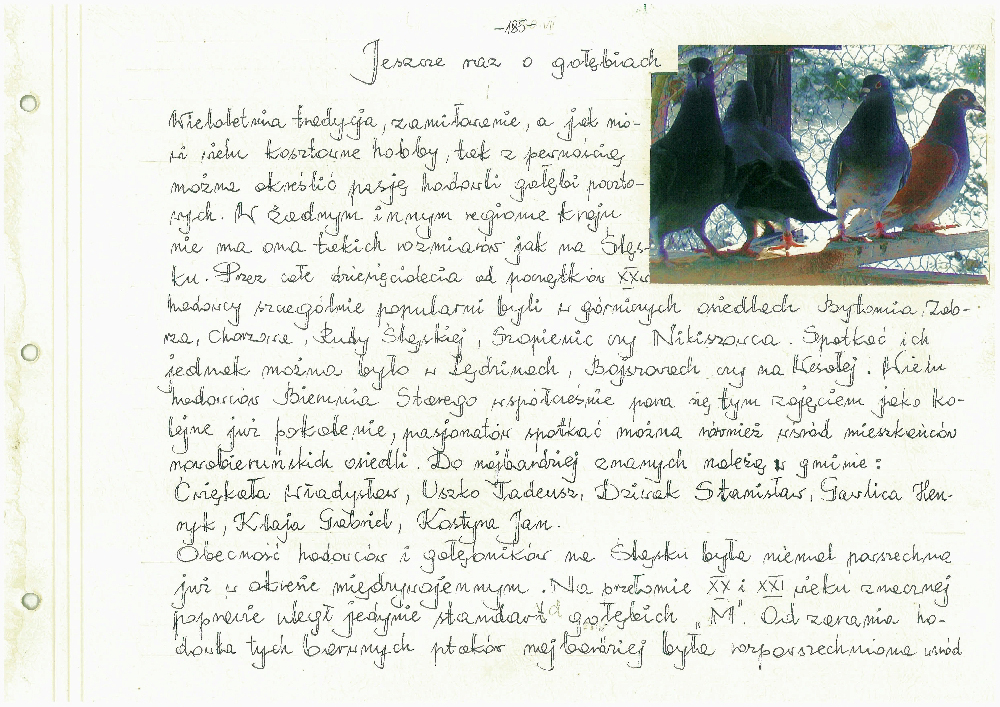 -185-
Jeszcze raz o gołębiach
Wieloletnia tradycja, zamiłowanie, a jak mó-
wi wielu kosztowne hobby, tak z pewnością
można określić pasję hodowli gołębi poczto-
wych. W żadnym innym regionie kraju
nie ma ona takich rozmiarów jak na Śląs-
ku. Przez całe dziesięciolecia od początków XXw
hodowcy szczególnie popularni byli w górniczych osiedlach Bytomia, Zab-
rza, Chorzowa, Rudy Śląskiej, Szopienic czy Nikiszowca. Spotkać ich
jednak można było w Lędzinach, Bojszowach czy na Wesołej. Wielu
hodowców Bierunia Starego współcześnie para się tym zajęciem jako ko-
lejne już pokolenie, pasjonatów spotkać można również wśród mieszkańców
nowobieruńskich osiedli. Do najbardziej znanych należą w gminie:
Ćwiękała Władysław, Uszko Tadeusz, Dziwak Stanisław, Gawlica Hen-
ryk, Kłaja Gabriel, Kostyra Jan.
Obecność hodowców i gołębników na Śląsku była niemal powszechna
już w okresie międzywojennym. Na przełomie XX i XXI wieku znacznej
poprawie uległ jedynie standard gołębich „M". Od zarania ho-
dowla tych barwnych ptaków najbardziej była rozpowszechniona wśród